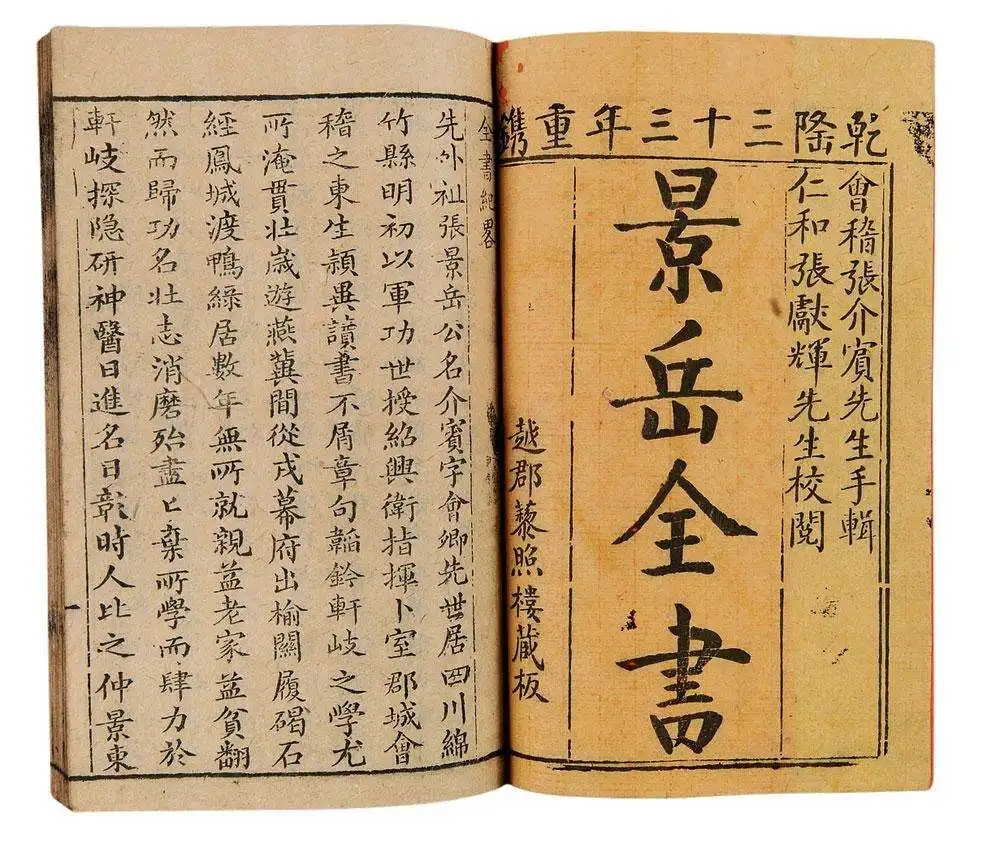 乾隆三十三年重鐫
會稽張介賓先生手輯
仁和張獻輝先生校閱
景岳全書
越郡藜照樓藏板
全書紀畧
先外祖張景岳公名介賓字會卿先世居四川綿
竹縣明初以軍功世授紹興衛指揮卜室郡城會
稽之東生頴異讀書不屑章句韜鈐軒岐之學尤
所淹貫壮歲遊燕冀間從戎幕府出榆關履碣石
經鳳城渡鴨緑居數年無所就親益老家益貧翻
然而歸功名壮志消磨殆盡匕棄所學而肆力於
軒岐探隐研神醫日進名日彰時人比之仲景東